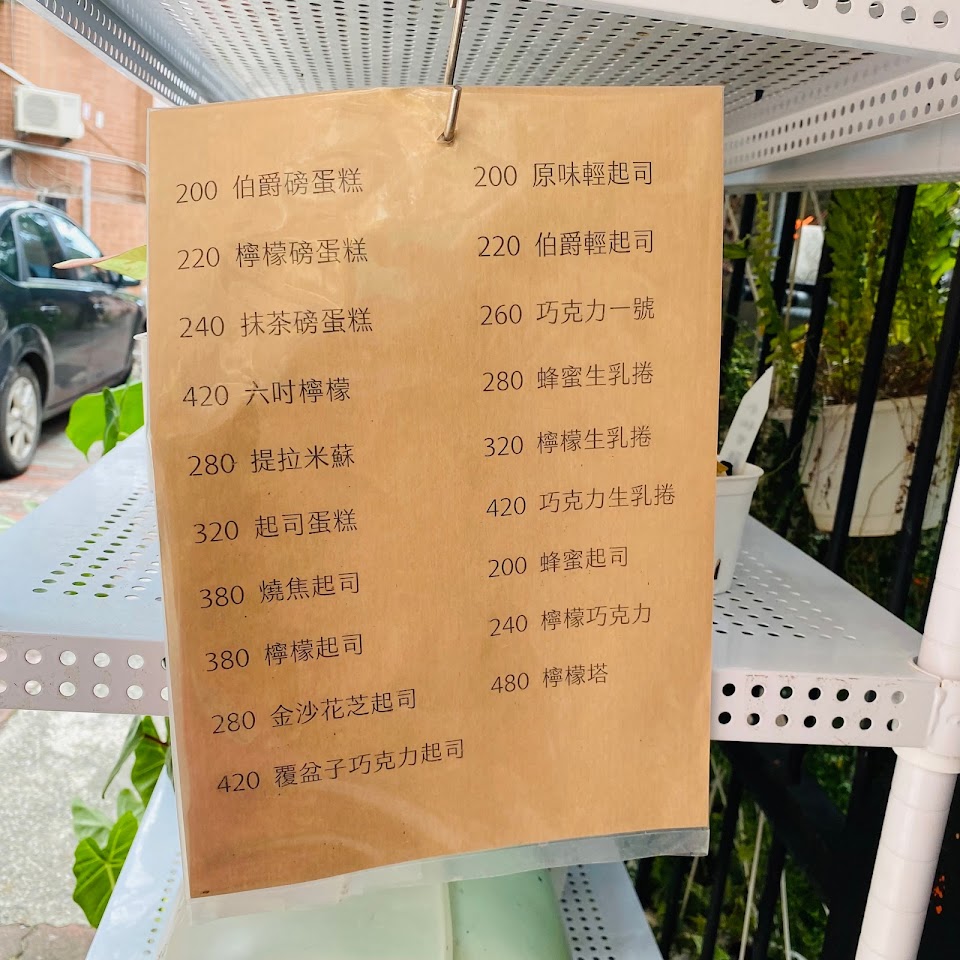 200 伯爵磅蛋糕
220 檸檬磅蛋糕
240 抹茶磅蛋糕
420 六吋檸檬
280 提拉米蘇
320 起司蛋糕
380 燒焦起司
380 檸檬起司
280 金沙花芝起司
420 覆盆子巧克力起司
200 原味輕起司
220 伯爵輕起司
260 巧克力一號
280 蜂蜜生乳捲
320 檸檬生乳捲
420 巧克力生乳捲
200 蜂蜜起司
240 檸檬巧克力
480 檸檬塔